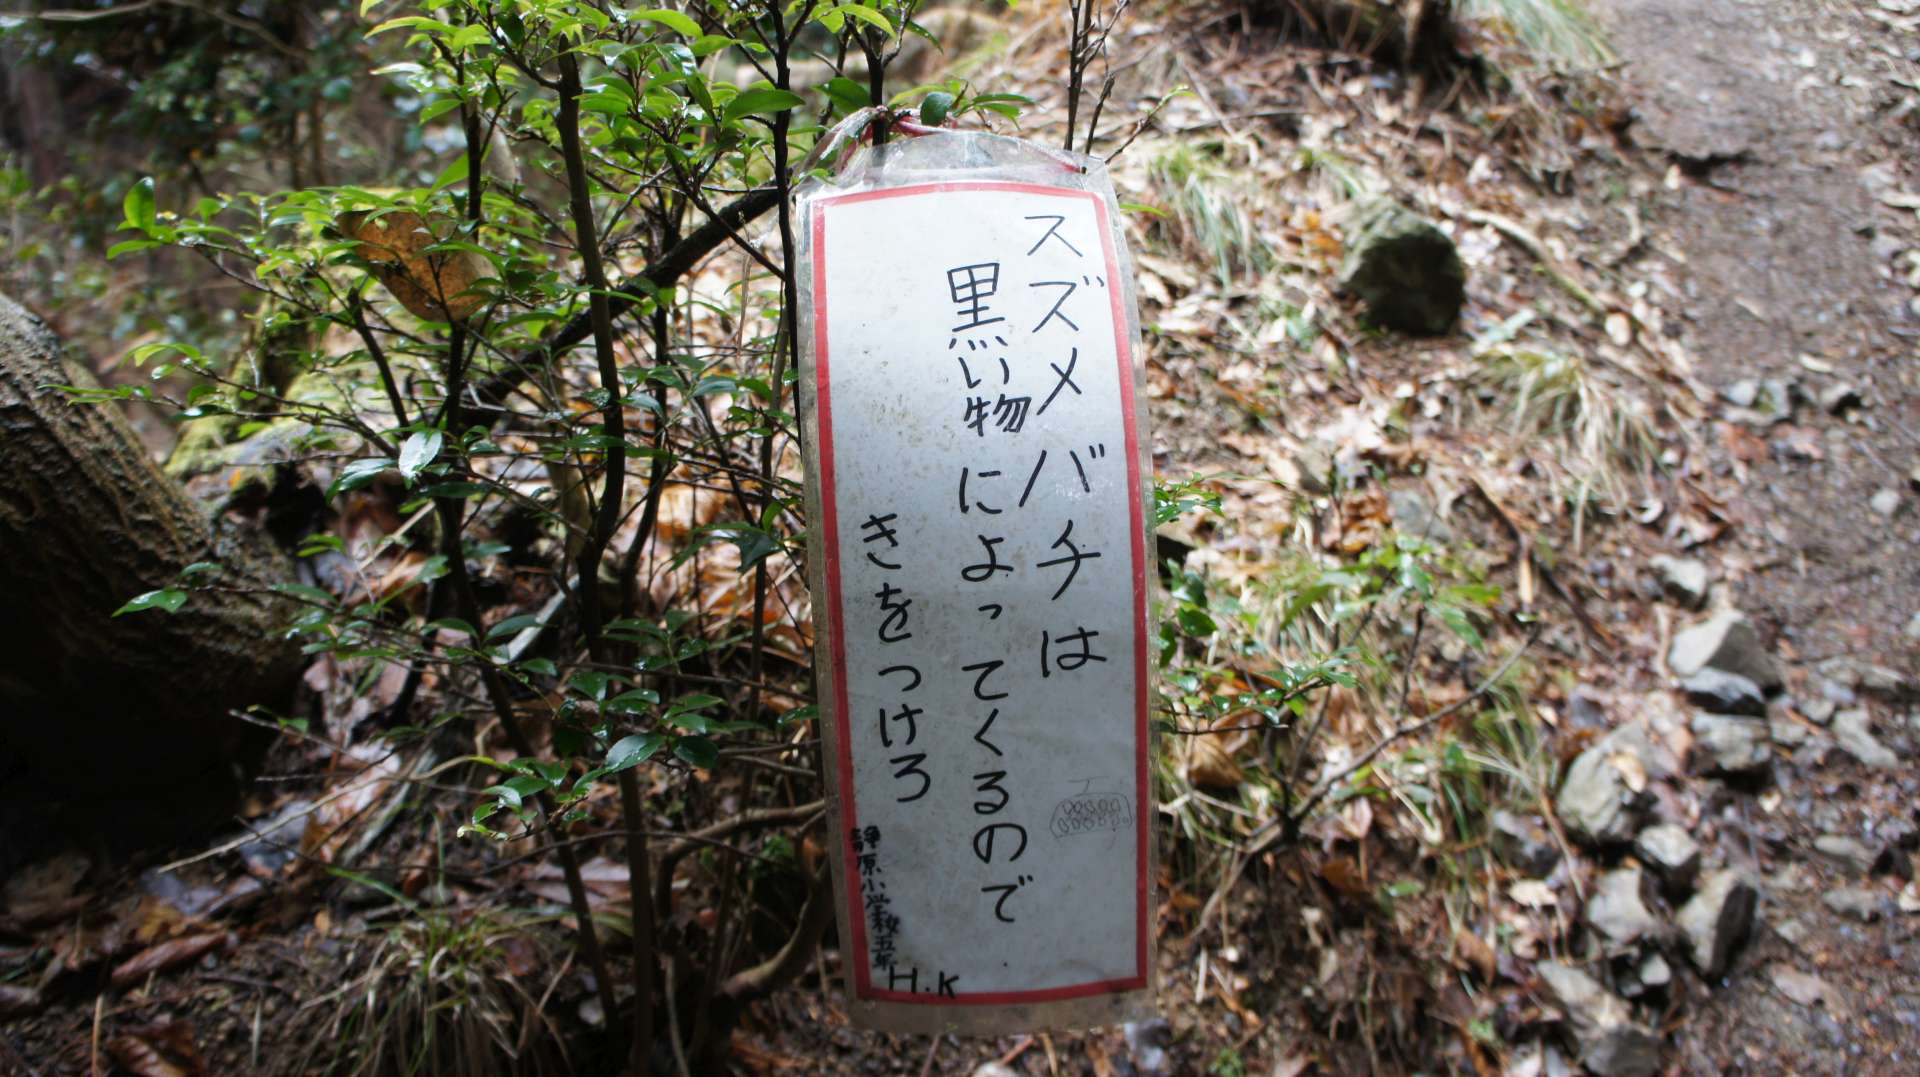 スズメバチは
黒い物によってくるので
きをつけろ
静原小学校五年
H.K